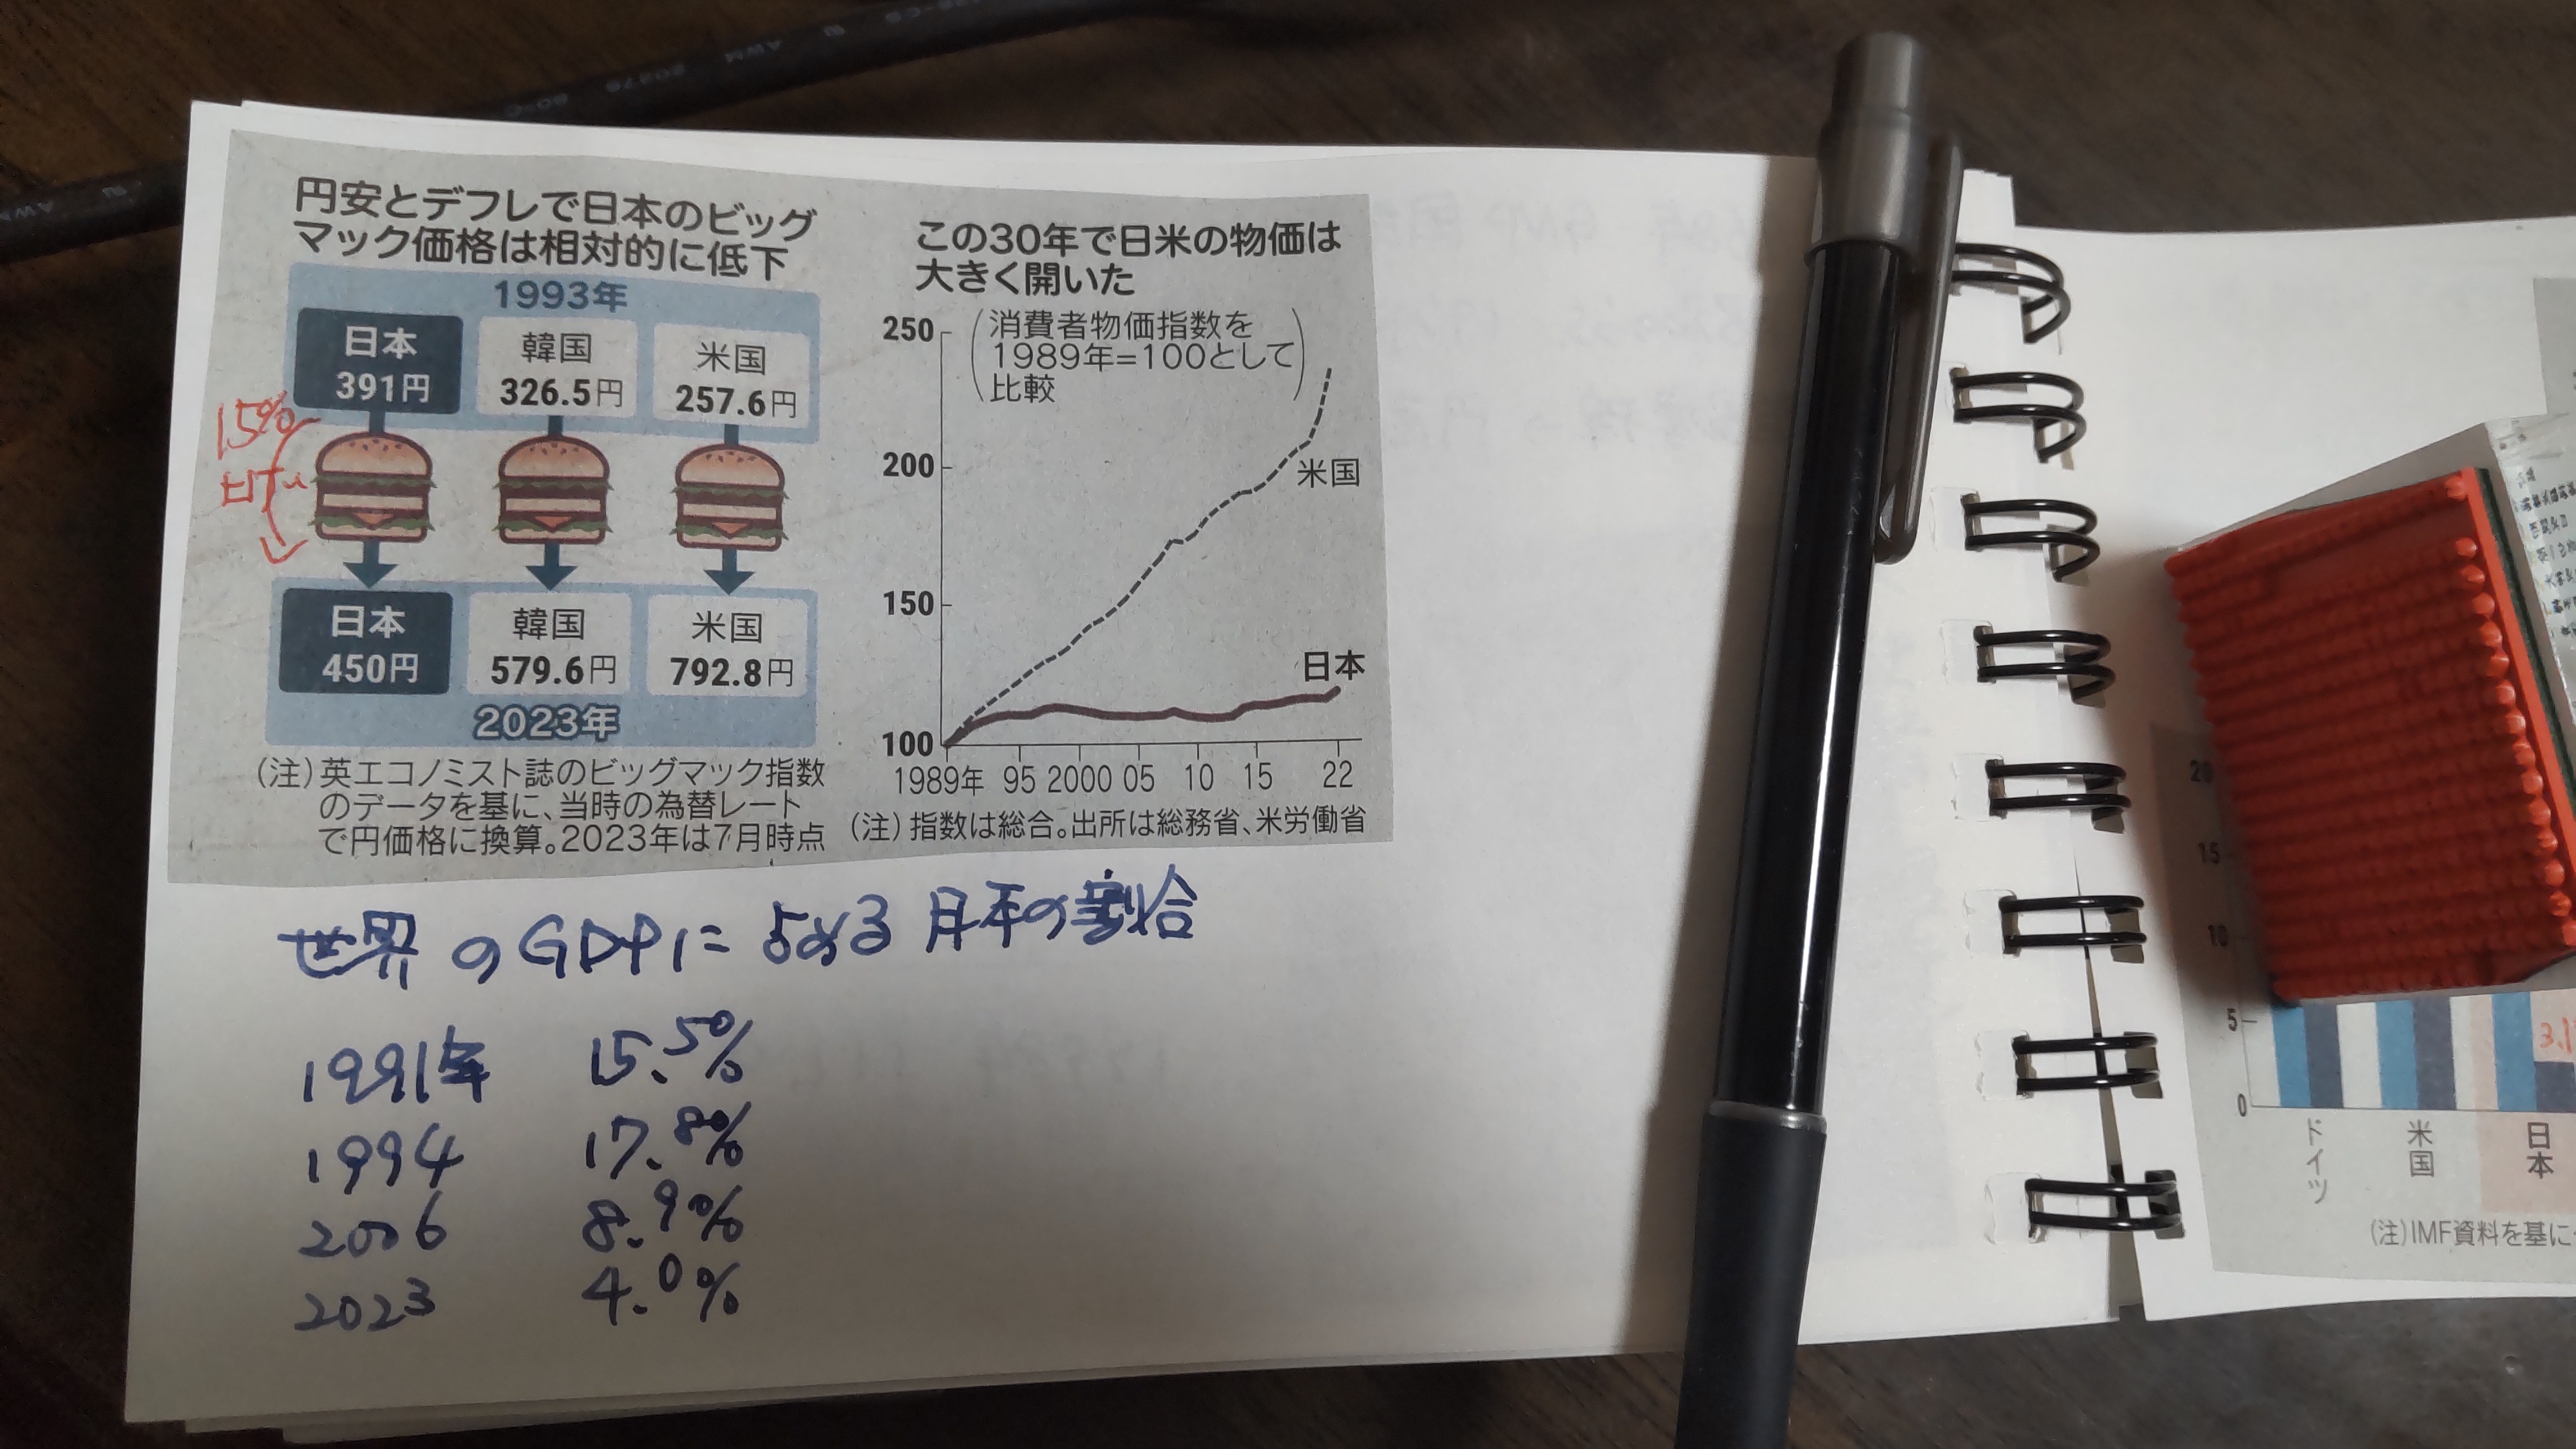 円安とデフレで日本のビッグ
マック価格は相対的に低下
1993年
日本
391円
韓国
326.5円
米国
257.6円
15%
日本
450円
韓国
579.6円
米国
792.8円
2023年
(注)英エコノミスト誌のビッグマック指数
のデータを基に、当時の為替レート
で円価格に換算。2023年は7月時点
この30年で日米の物価は
大きく開いた
(消費者物価指数を
1989年=100として
比較)
250
200
150
100
米国
日本
1989年 95 2000 05 10 15 22
(注)指数は総合。出所は総務省、米労働省
世界のGDPに占める日本の割合
1991年 15.5%
1994 17.8%
2006 8.9%
2023 4.0%
20
15
10
5
0
ドイツ
米国
日本
(注)IMF資料を基に
AWM 20276 80°C